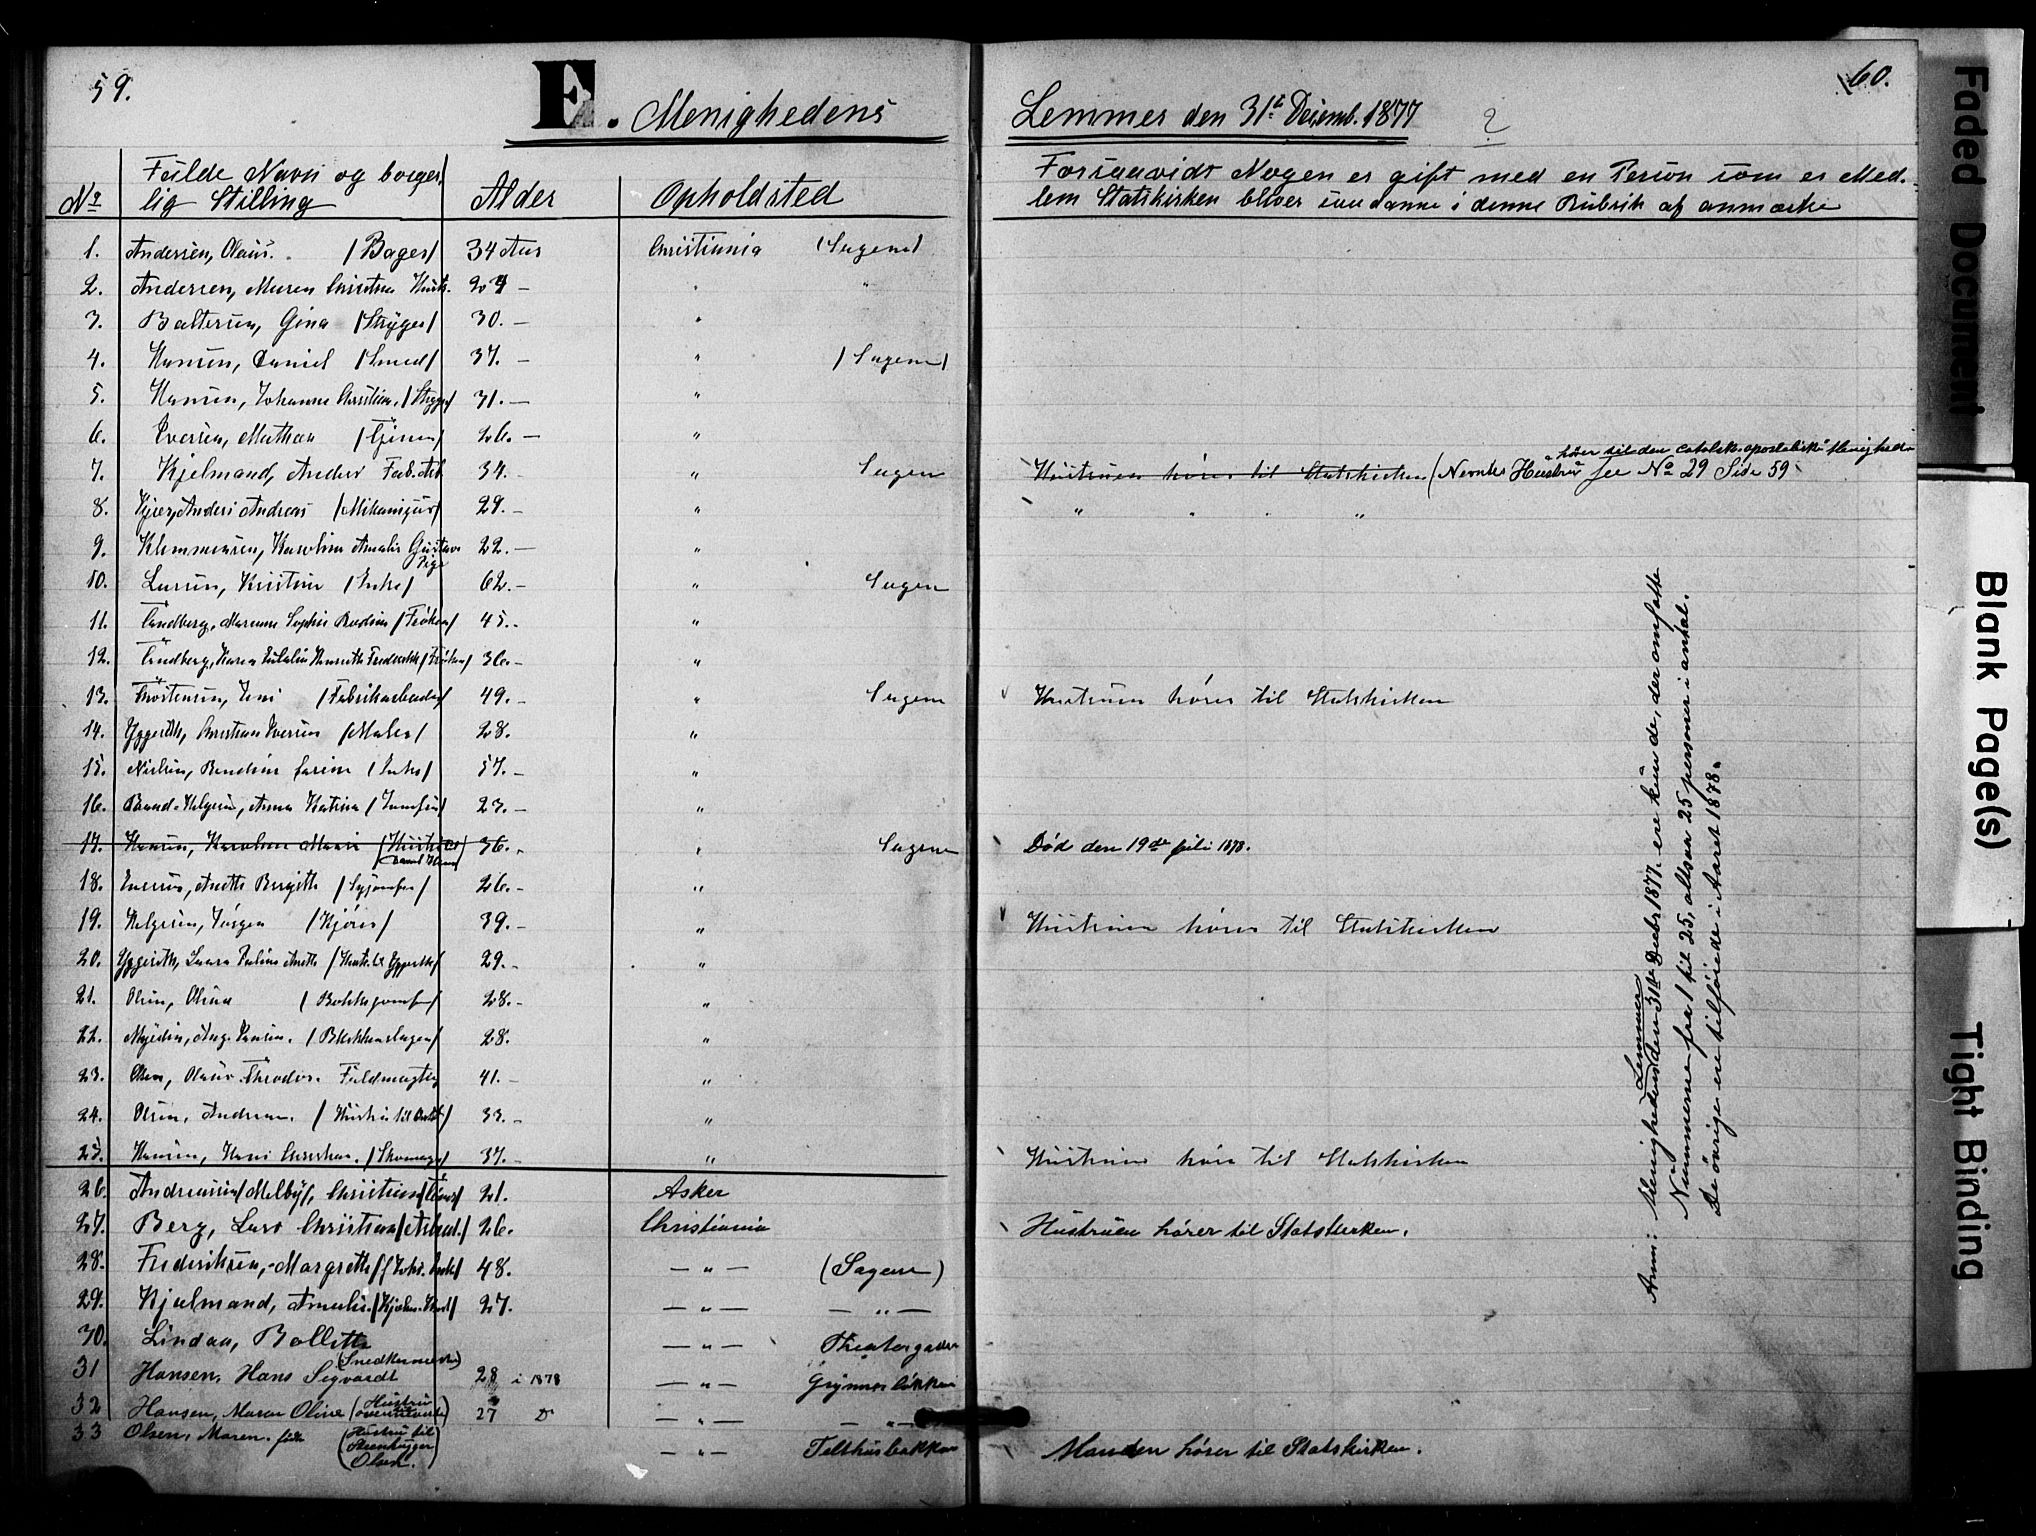 59.
60.
E. Menighedens Lemmer den 31te Decemb. 1877 ?
No Fulde Navn og borger- lig Stilling Alder Opholdsted
Forsaavidt Nogen er gift med en Person som er Med-
lem Statskirken bliver saadanne i denne Rubrik af anmærke
1. Andersen, Olaus. /Bager/ 34 Aar Christiania (Sagene)
2. Andersen, Maren Christine Hustr. 29 — "
3. Baltersen, Gina /Stryger/ 30. — "
4. Hansen, Daniel /Smed/ 37. — " /Sagene/
5. Hansen, Johanne Christine. /Stryger/ 31. — "
6. Iversen, Mathea /Tjener/ 26. — "
7. Kjelmand, Ander Fab. Arb 34. — " Sagen Hustruen hører til Statskirken (Nevnte Hustru see No 29 Side 59
hører til den catolsk-apostoliske Menighed
8. Kjær, Anders Andreas /Mikanigus/ 29. — " " " " "
9. Klemmensen, Karoline Amalie Gustava Pige 22. — "
10. Larsen, Kristine /Enke/ 62. — " Sagen
11. Lindberg, Marenne Sophie Bodine /Frøken/ 45. — "
12. Lindberg, Karen Eulalia Henriette Frederikke /Frøken/ 36. — "
13. Thorstensen, Jens /Fabrikarbeider/ 49. — " Sagene Hustruen hører til Statskirken
14. Yggeseth, Christian Iversen /Maler/ 28. "
15. Nielsen, Bendine Larine /Enke/ 57. — "
16. Baand-Helgesen, Anna Katrina /Jomfru/ 23. — "
17. Hansen, Karoline Marie /Hustru Daniel Hans/ 36. " Sagene Død den 19de juli 1878.
18. Iversen, Anette Birgitte /Syjomfru/ 26. — "
19. Helgesen, Jörgen /Kjører/ 39. — " Hustruen hører til Statskirken
20. Yggeseth, Laura Pauline Anette /Hust. til Yggeseth/ 29. — "
21. Olsen, Olina /Butiksjomfru/ 28. — "
22. Aug. Hansen. /Blikkenslager/ 28. "
23. Olsen, Olaus Theodor. Fuldmægtig 41. — "
24. Olsen, Andrea. /Hustru til Ovst/ 33. — "
25. Hansen, Hans Christian. /Skomager/ 37. — " Hustruen hører til Statskirken
26. Andreassen /Melby/, Christian /Tjener/ 21. Asker
27. Berg, Lars Christian /Arbeid./ 26. Christiania Hustruen hører til Statskirken.
28. Frederiksen, Margrethe /Enke/ 48. — " — (Sagene)
29. Kjelmand, Amalie. /Kjelm. Hust/ 27. — " — — " —
30. Lindaa, Bollette — " — Theatergaden
31 Hansen, Hans Segvardt (Snedkermester) 28 i 1878 — " — Grynerløkken
32 Hansen, Maren Oline (Hustru ovennævnte) 27 D — " — — " —
33 Olsen, Maren. (Hustru til Steenhugger Olsen.) — " — Telthusbakken Manden hører til Statskirken.
Anm: Menighedens Lemmer den 31te Decbr 1877. ere kun de, der omfatte
Nummerne fra 1 til 25, altsaa 25 personer i antal.
De øvrige ere tilførede i Aaret 1878.
Faded Document
Blank Page(s)
Tight Binding